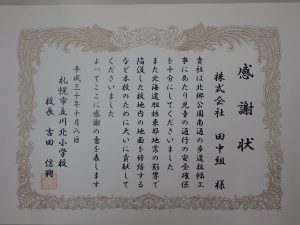 感謝状
株式会社 田中組 様
貴社は北郷公園南通の歩道拡幅工
事にあたり児童の通行の安全確保
を十分にしてくださいました
また北海道胆振東部地震の影響で
陥没した校地内の地面を修繕する
など本校のために大いに貢献して
くださいました
よってここに感謝の意を表します
平成三十年十月八日
札幌市立川北小学校
校長 吉田 信